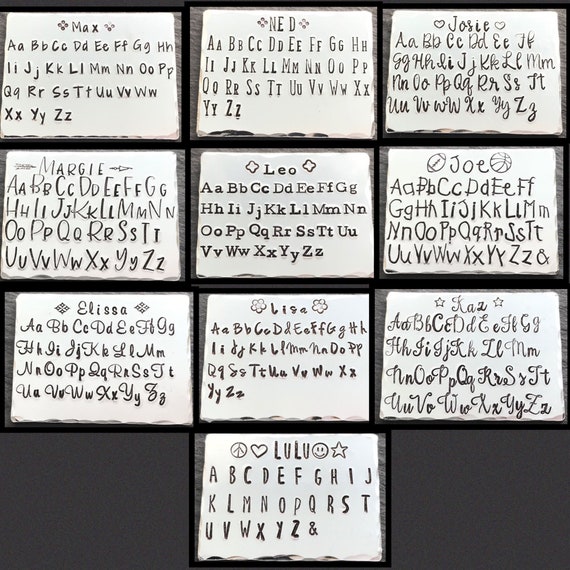 Max
Aa Bb Cc Dd Ee Ff Gg Hh
Ii Jj Kk Ll Mm Nn Oo Pp
Qq Rr Ss Tt Uu Vv Ww
Xx Yy Zz
NED
Aa Bb Cc Dd Ee Ff Gg Hh
Ii Jj Kk Ll Mm Nn Oo Pp
Qq Rr Ss Tt Uu Vv Ww Xx
Yy Zz
Josie
Aa Bb Cc Dd Ee Ff
Gg Hh Ii Jj Kk Ll Mm
Nn Oo Pp Qq Rr Ss Tt
Uu Vv Ww Xx Yy Zz
MARGIE
Aa Bb Cc Dd Ee Ff Gg
Hh Ii Jj Kk Ll Mm Nn
Oo Pp Qq Rr Ss Tt
Uu Vv Ww Xx Yy Zz
Leo
Aa Bb Cc Dd Ee Ff Gg
Hh Ii Jj Kk Ll Mm Nn
Oo Pp Qq Rr Ss Tt Uu
Vv Ww Xx Yy Zz
Joe
Aa Bb Cc Dd Ee Ff
Gg Hh Ii Jj Kk Ll Mm
Nn Oo Pp Qq Rr Ss Tt
Uu Vv Ww Xx Yy Zz &
Elissa
Aa Bb Cc Dd Ee Ff Gg
Hh Ii Jj Kk Ll Mm
Nn Oo Pp Qq Rr Ss Tt
Uu Vv Ww Xx Yy Zz
Lisa
Aa Bb Cc Dd Ee Ff Gg Hh
Ii Jj Kk Ll Mm Nn Oo Pp
Qq Rr Ss Tt Uu Vv Ww Xx
Yy Zz
Kaz
Aa Bb Cc Dd Ee Ff Gg
Hh Ii Jj Kk Ll Mm
Nn Oo Pp Qq Rr Ss Tt
Uu Vv Ww Xx Yy Zz
LULU
A B C D E F G H I J
K L M N O P Q R S T
U V W X Y Z &